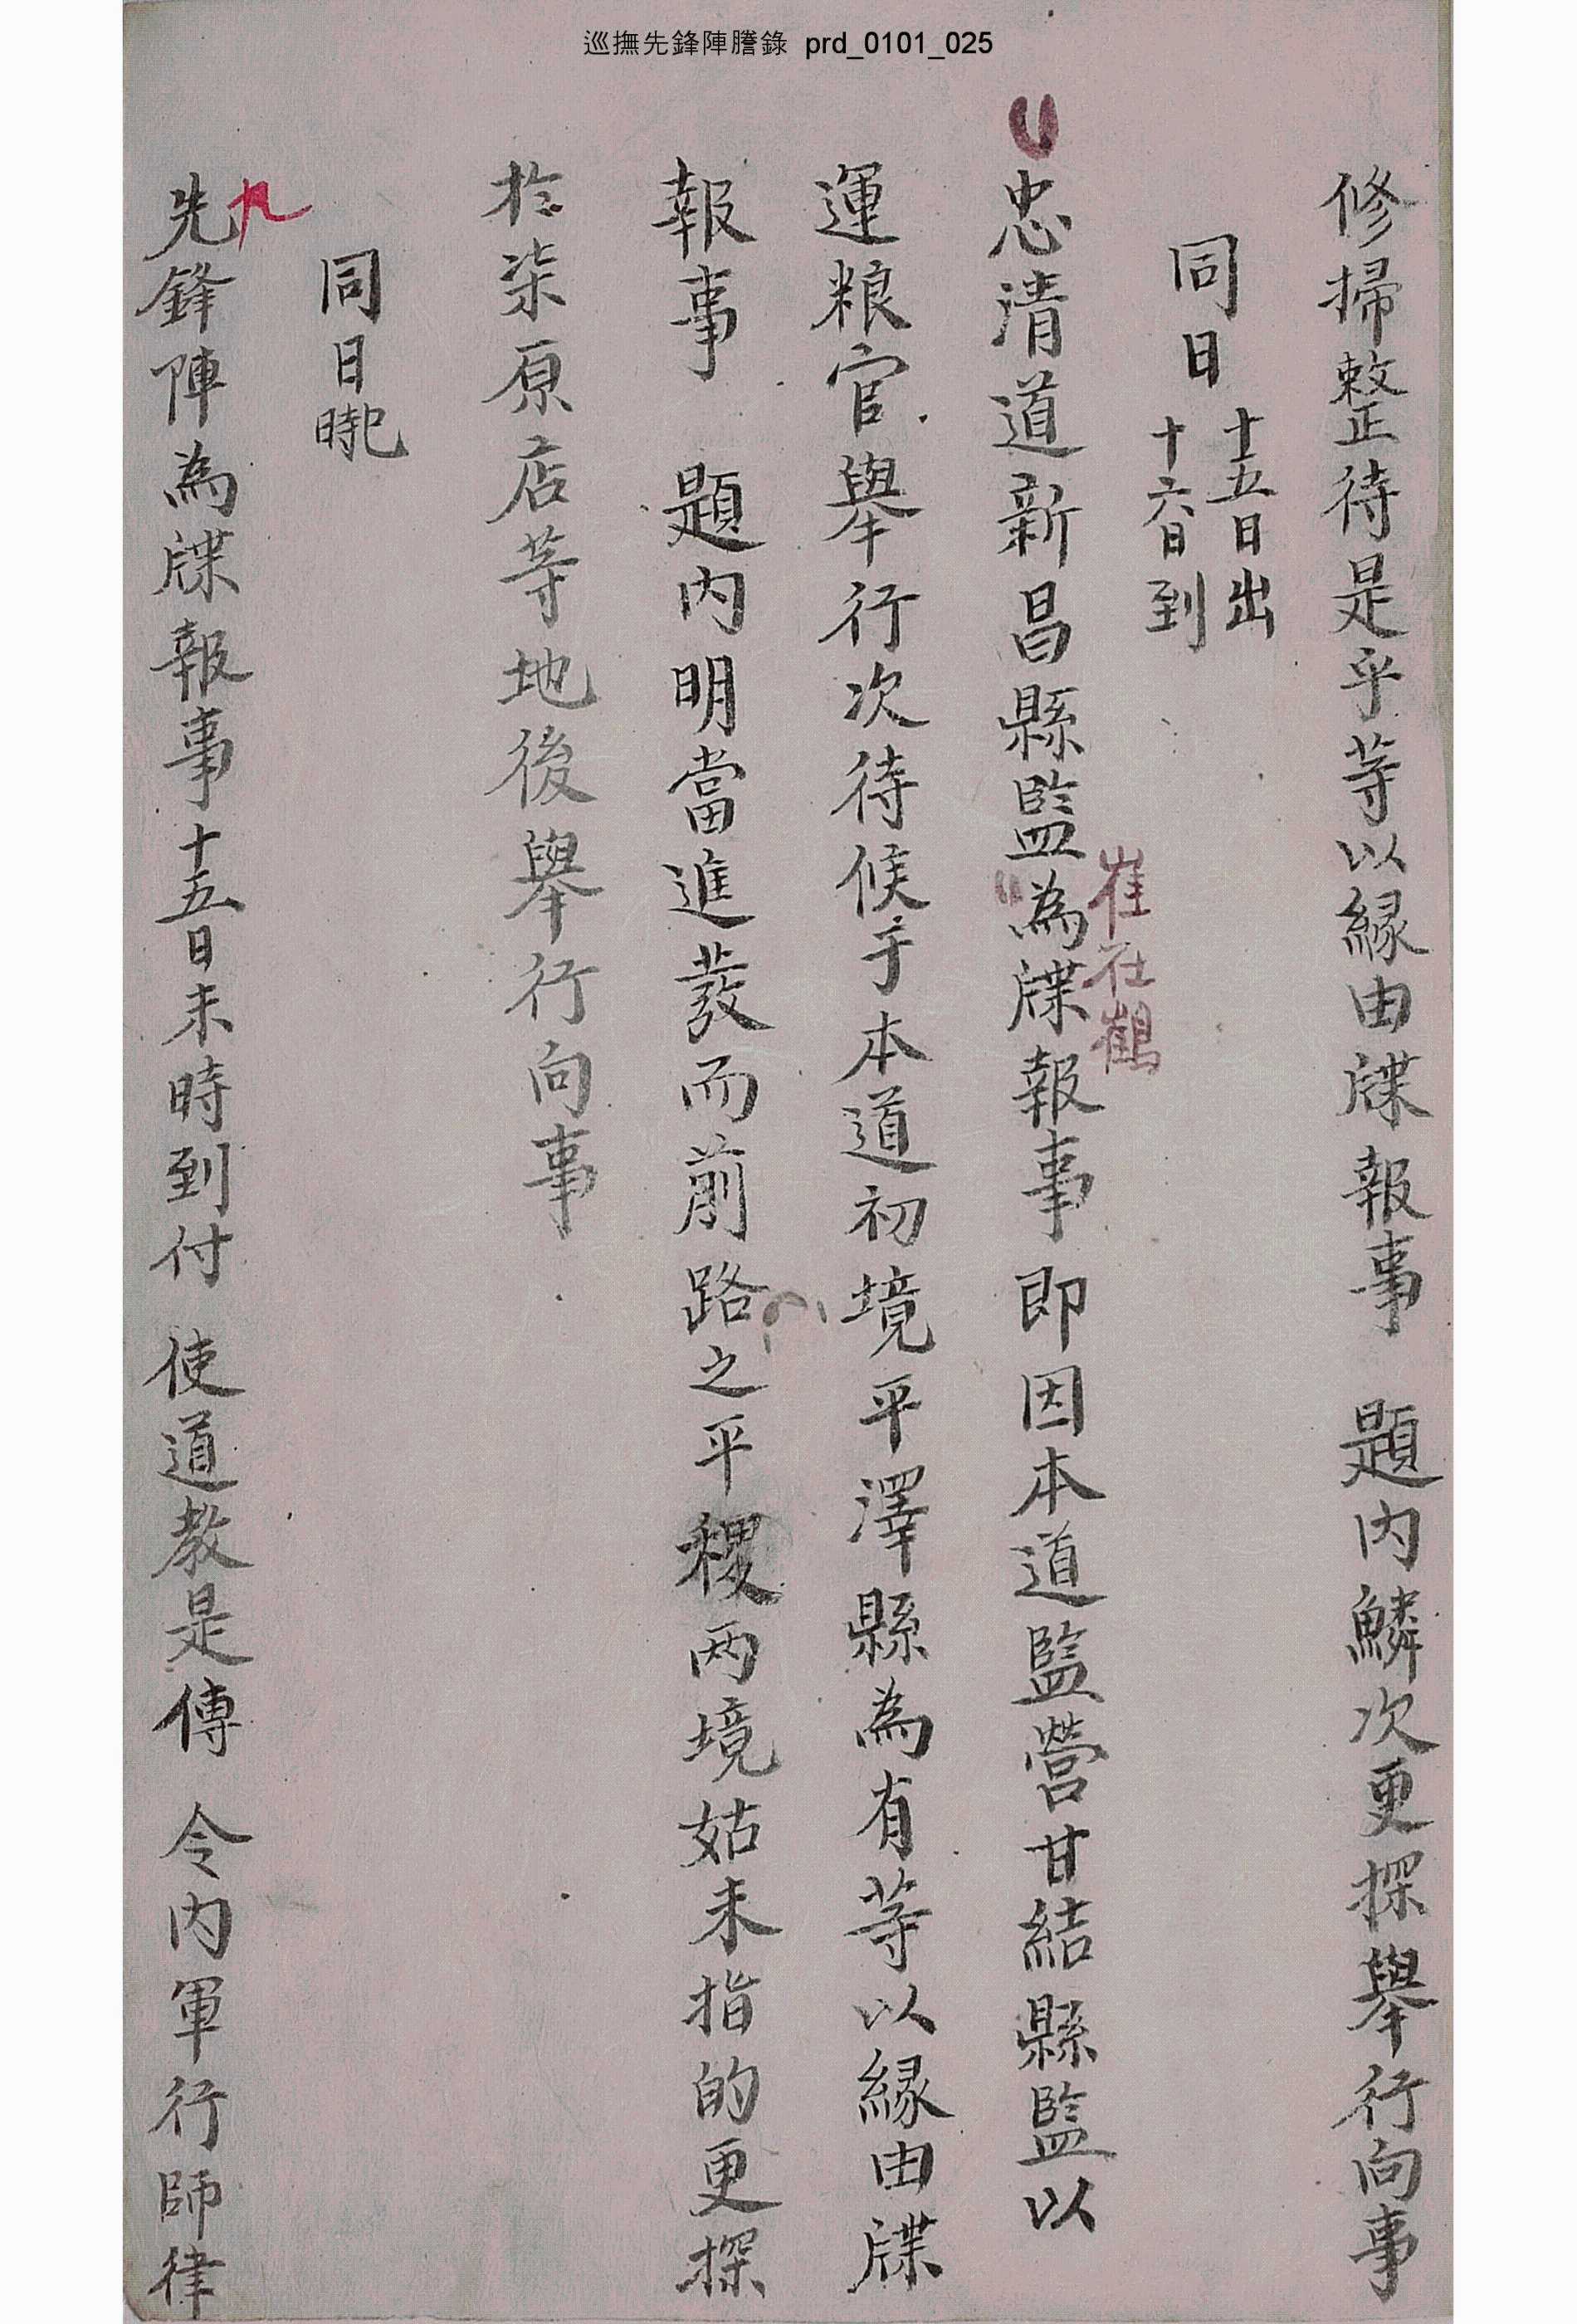 巡撫先鋒陣謄錄 prd_0101_025
修掃整待是乎等以緣由牒報事 題內鱗次更探舉行向事
同日 十五日出
十六日到
忠清道新昌縣監為牒報事即因本道監營甘結縣監以
崔在鶴
運粮官舉行次待候于本道初境平澤縣為有等以緣由牒
報事 題內明當進發而前路之平稷兩境姑未指的更探
於柒原店等地後舉行向事
同日巳時
先鋒陣為牒報事十五日未時到付 使道教是傳 令內軍行師律
九